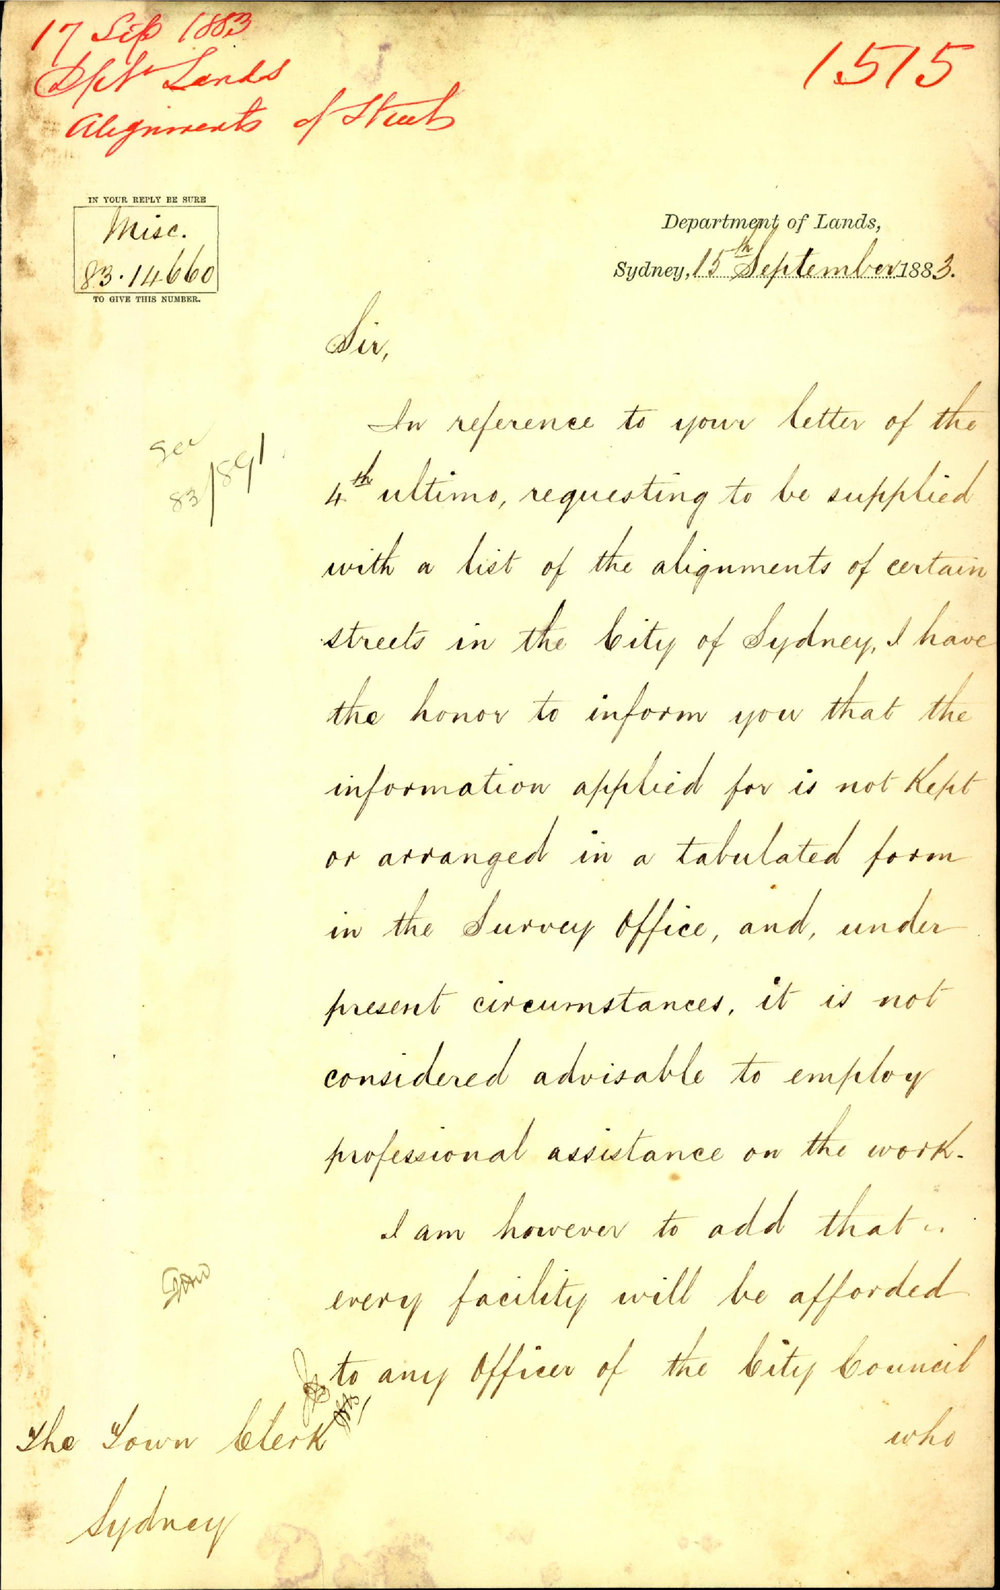 17 Sep 1883
Dept Lands
Alignments of Streets
1515
IN YOUR REPLY BE SURE
Misc.
83.14660
TO GIVE THIS NUMBER.
Department of Lands,
Sydney, 15th September 1883.
Sir,
In reference to your letter of the
4th ultimo, requesting to be supplied
with a list of the alignments of certain
streets in the City of Sydney, I have
the honor to inform you that the
information applied for is not Kept
or arranged in a tabulated form
in the Survey Office, and, under
present circumstances, it is not
considered advisable to employ
professional assistance on the work.
I am however to add that
every facility will be afforded
to any Officer of the City Council
who
The Town Clerk
Sydney
See
83/891